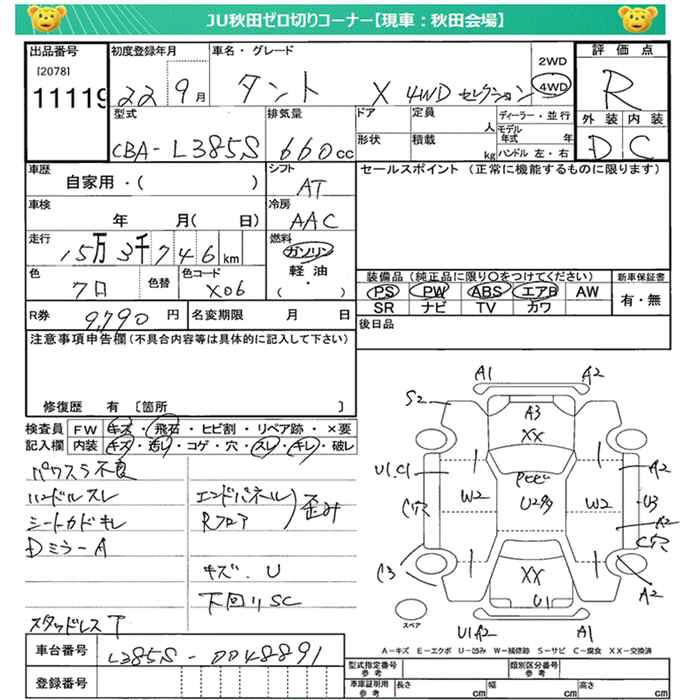 JU秋田ゼロ切りコーナー【現車：秋田会場】
出品番号 初度登録年月 車名・グレード 評価点
[2078] 2WD
11119 22 9月 タント X 4WD セレクション 4WD R
型式 排気量 ドア 定員 人 ディーラー・並行 外装 内装
CBA-L385S 660cc 形状 積載 kg モデル年式 年 ハンドル 左・右 D C
車歴 シフト セールスポイント（正常に機能するものに限ります）
自家用・( ) AT
車検 冷房
年 月( 日) AAC
走行 燃料
15万3千746km ガソリン
色 色替 色コード 軽油 装備品（純正品に限り○をつけてください） 新車保証書
クロ X06 ・( ) PS PW ABS エアB AW 有・無
SR ナビ TV カワ
R券 9,790円 名変期限 月 日 後日品
注意事項申告欄（不具合内容等は具体的に記入して下さい）
修復歴 有 〔箇所 〕
検査員 FW キズ・飛石・ヒビ割・リペア跡・×要
記入欄 内装 キズ・汚レ・コゲ・穴・スレ・キレ・破レ
パワスラ不良
ハンドルスレ エンドパネル
シートカドキレ Rフロア 歪み
Dミラー A
キズ.U
下回りSC
スタッドレスT
A1 A2
S2 A3
XX
U1.C1 Pヒビ A2
W2 U2多 W2 U3
C穴 A2
C穴
C3 XX A2
U1
スペア U1A2 A1
A－キズ E－エクボ U－凹み W－補修跡 S－サビ C－腐食 XX－交換済
車台番号 L385S-0048891 型式指定番号 参考 類別区分番号 参考
登録番号 車庫証明用 参考 長さ cm 幅 cm 高さ cm